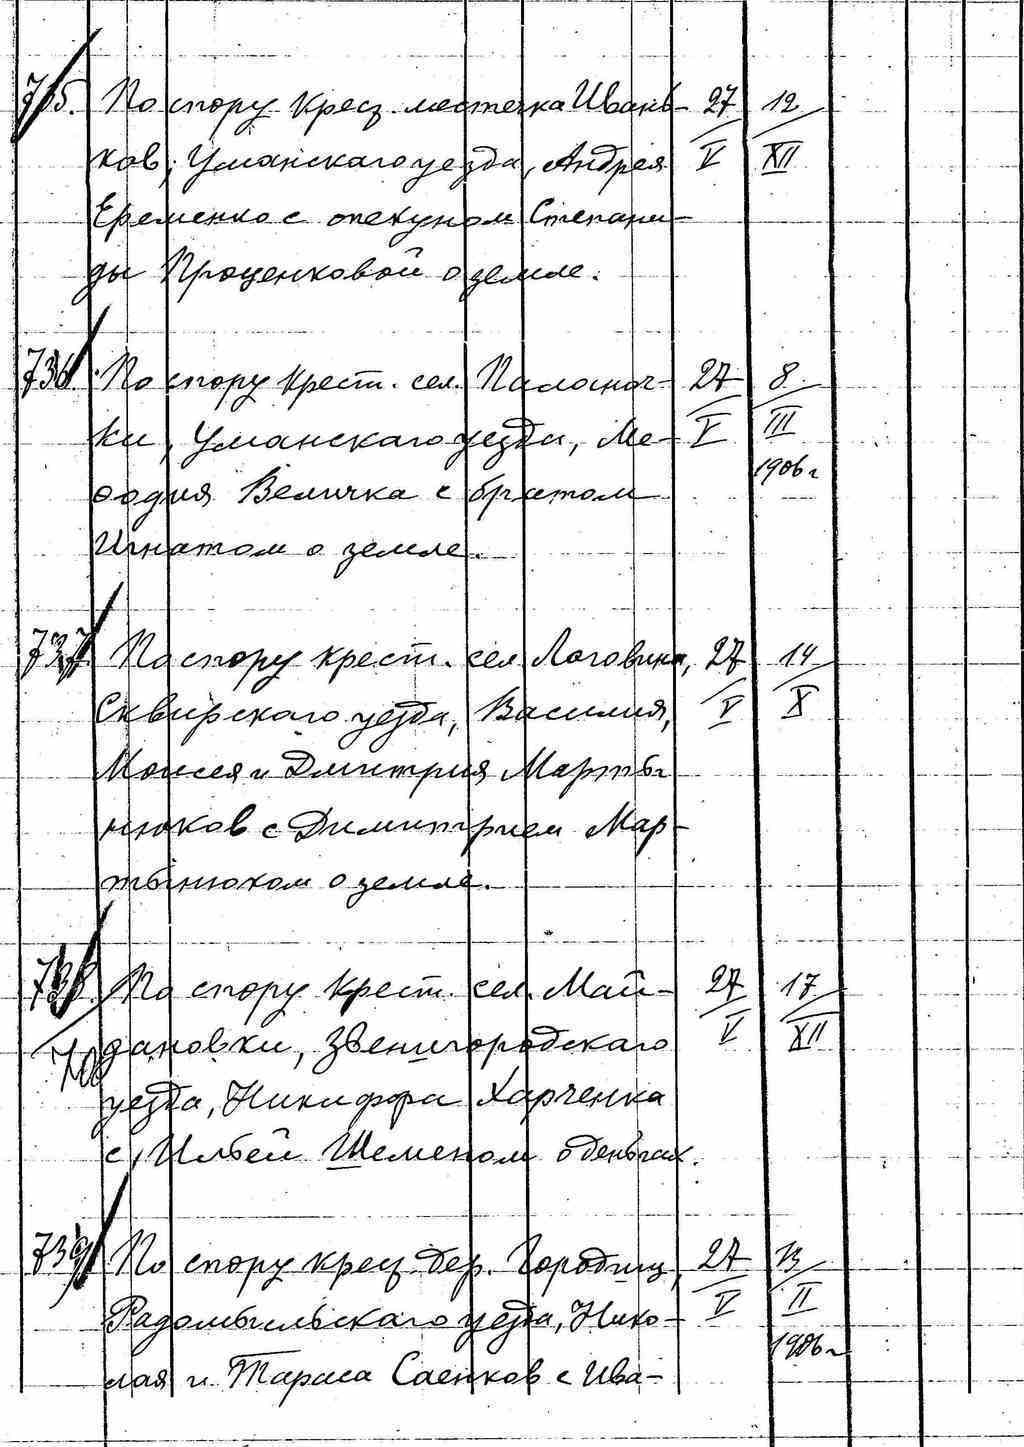 735. По спору крест. местечка Ивань- 27 12
ков, Уманскаго уезда, Андрея V XII
Еременко с опекуном Степани-
ды Проценковой о земле.
736. По спору крест. сел. Паланоч- 27 8
ки, Уманскаго уезда, Ме- V III
фодия Величка с братом 1906 г
Игнатом о земле.
737. По спору крест. сел. Логвина, 27 14
Сквирскаго уезда, Василия, V X
Моисея и Дмитрия Марты-
нюков с Димитрием Мар-
тынюком о земле.
738. По спору крест. сел. Май- 27 17
дановки, Звенигородскаго V XII
уезда, Никифора Харченка
с Ильей Шеменом о деньгах.
739. По спору крест. дер. Городищ, 27 13
Радомысльскаго уезда, Нико- V II
лая и Тараса Саенков с Ива- 1906 г